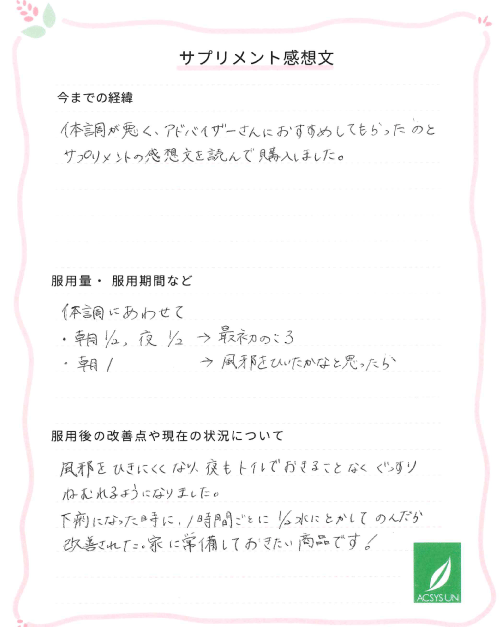 サプリメント感想文
今までの経緯
体調が悪く、アドバイザーさんにおすすめしてもらったのと
サプリメントの感想文を読んで購入しました。
服用量・服用期間など
体調にあわせて
・朝1/2, 夜 1/2 → 最初のころ
・朝1 → 風邪をひいたかなと思ったら
服用後の改善点や現在の状況について
風邪をひきにくくなり、夜もトイレでおきることなくぐっすり
ねむれるようになりました。
下痢になった時に、1時間ごとに 1/2 水にとかしてのんだら
改善されてた。家に常備しておきたい商品です!
ACSYSUN